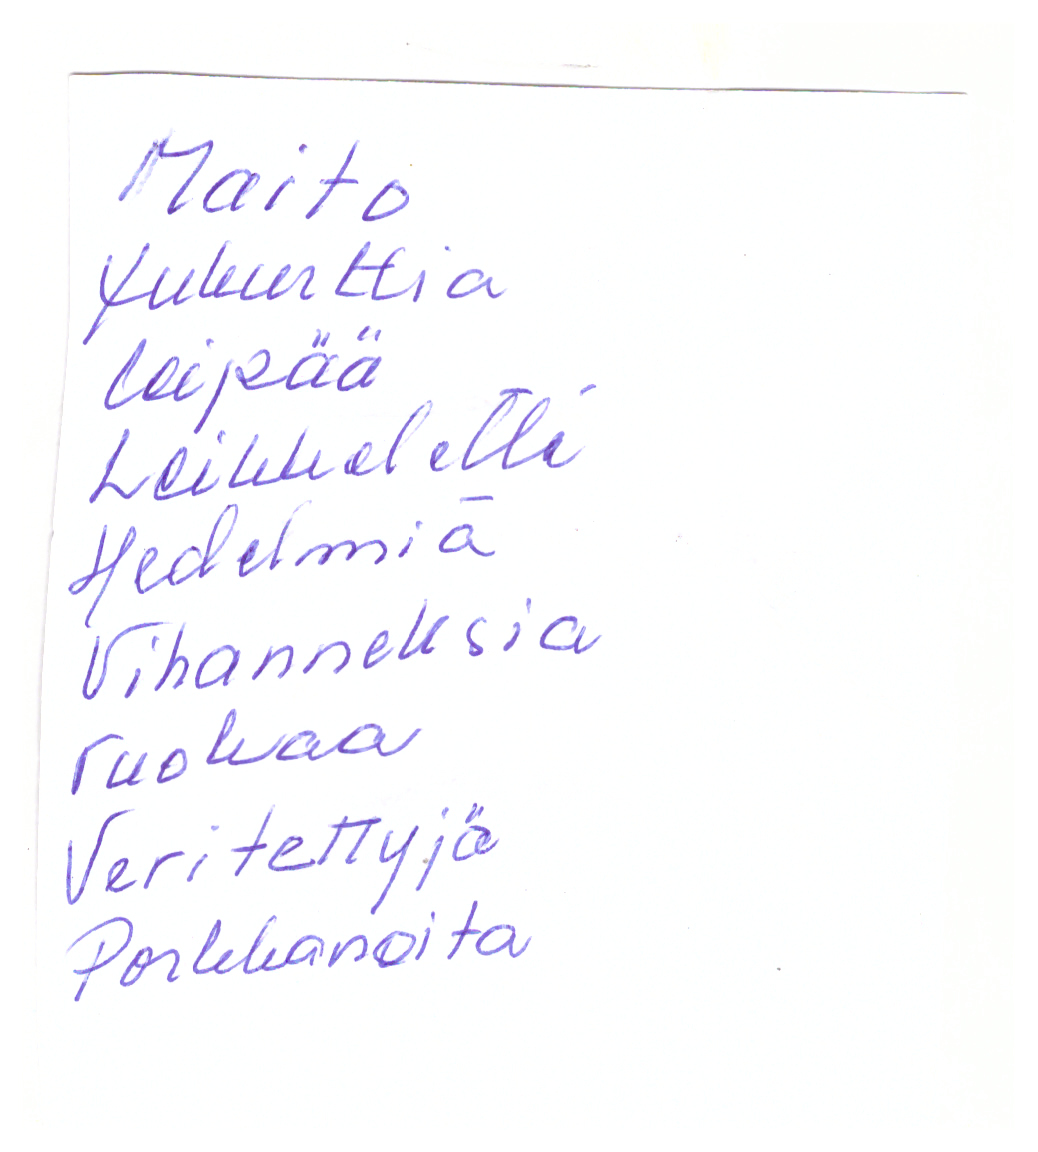 Maito
Yukurttia
leipää
Leikkeletti
Hedelmiä
Vihanneksia
ruokaa
Veritettyjä
Porkkanoita